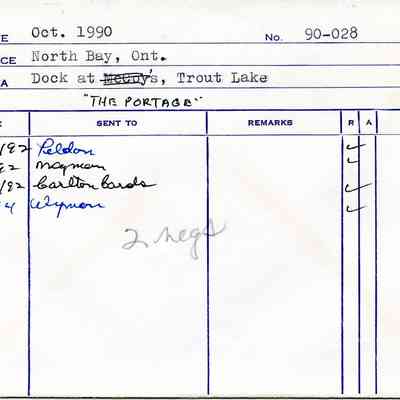 E Oct. 1990 No. 90-028
CE North Bay, Ont.
A Dock at McCoy's, Trout Lake
"THE PORTAGE"
E SENT TO REMARKS R A
/92 Peldon ✓
92 Magman ✓
/92 Carlton Cards ✓
4 Wyman ✓
2 negs